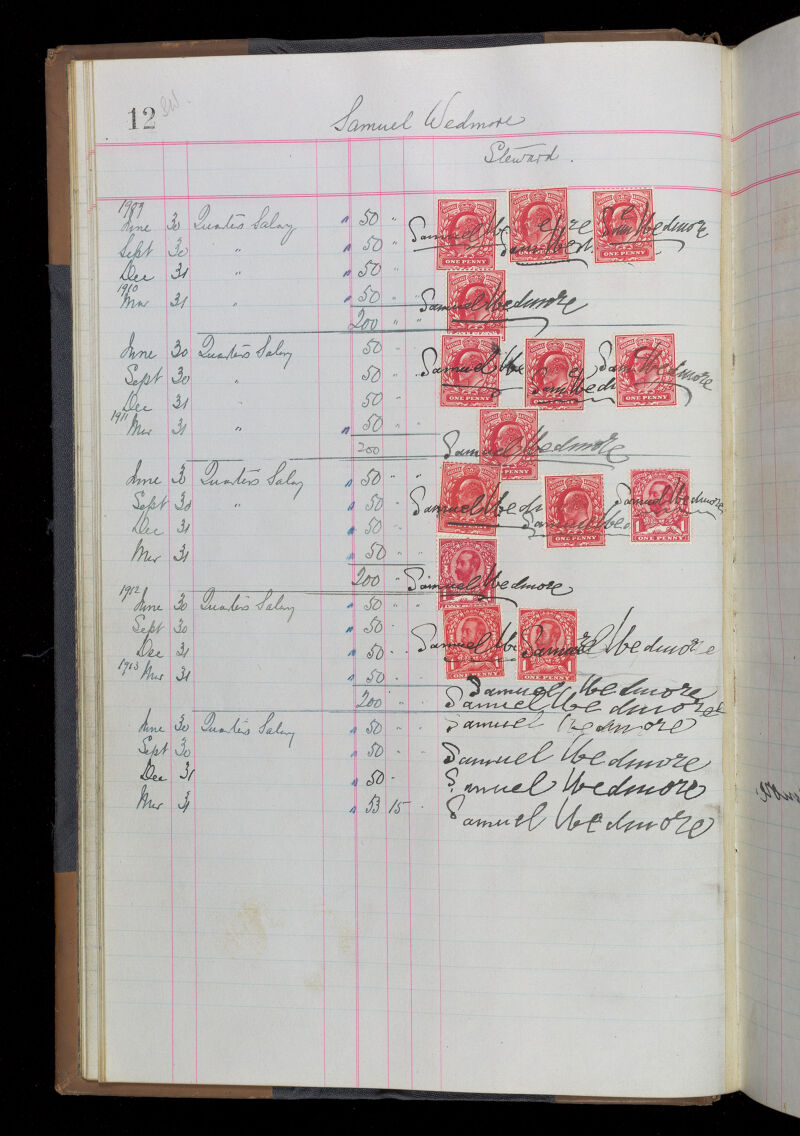 12 SW.
Samuel Wedmore
Steward.
1909
June 30 Quarters Salary " 50 " Samuel We
Sept 30 " " 50 "
Dec 31 " " 50 "
1910
Mar 31 " " 50 " Samuel Wedmore
200 " "
June 30 Quarters Salary 50 Samuel We
Sept 30 " 50
Dec 31 " 50
1911
Mar 31 " " 50
200 Samuel Wedmore
June 30 Quarters Salary " 50 " "
Sept 30 " " 50 " Samuel Wedmore
Dec 31 " 50
Mar 31 " 50 "
200 " Samuel Wedmore
1912
June 30 Quarters Salary " 50 "
Sept 30 " 50
Dec 31 " 50 Samuel We Samuel Wedmore
1913
Mar 31 " 50 Samuel Wedmore
200 " Samuel Wedmore
June 30 Quarters Salary " 50 Samuel Wedmore
Sept 30 " 50 Samuel Wedmore
Dec 31 " 50 Samuel Wedmore
Mar 31 " 53 15 Samuel Wedmore
ONE PENNY
ONE PENNY
ONE PENNY
ONE PENNY
ONE PENNY
ONE PENNY
ONE PENNY
ONE PENNY
1 ONE PENNY 1
1 ONE PENNY 1
1 ONE PENNY 1